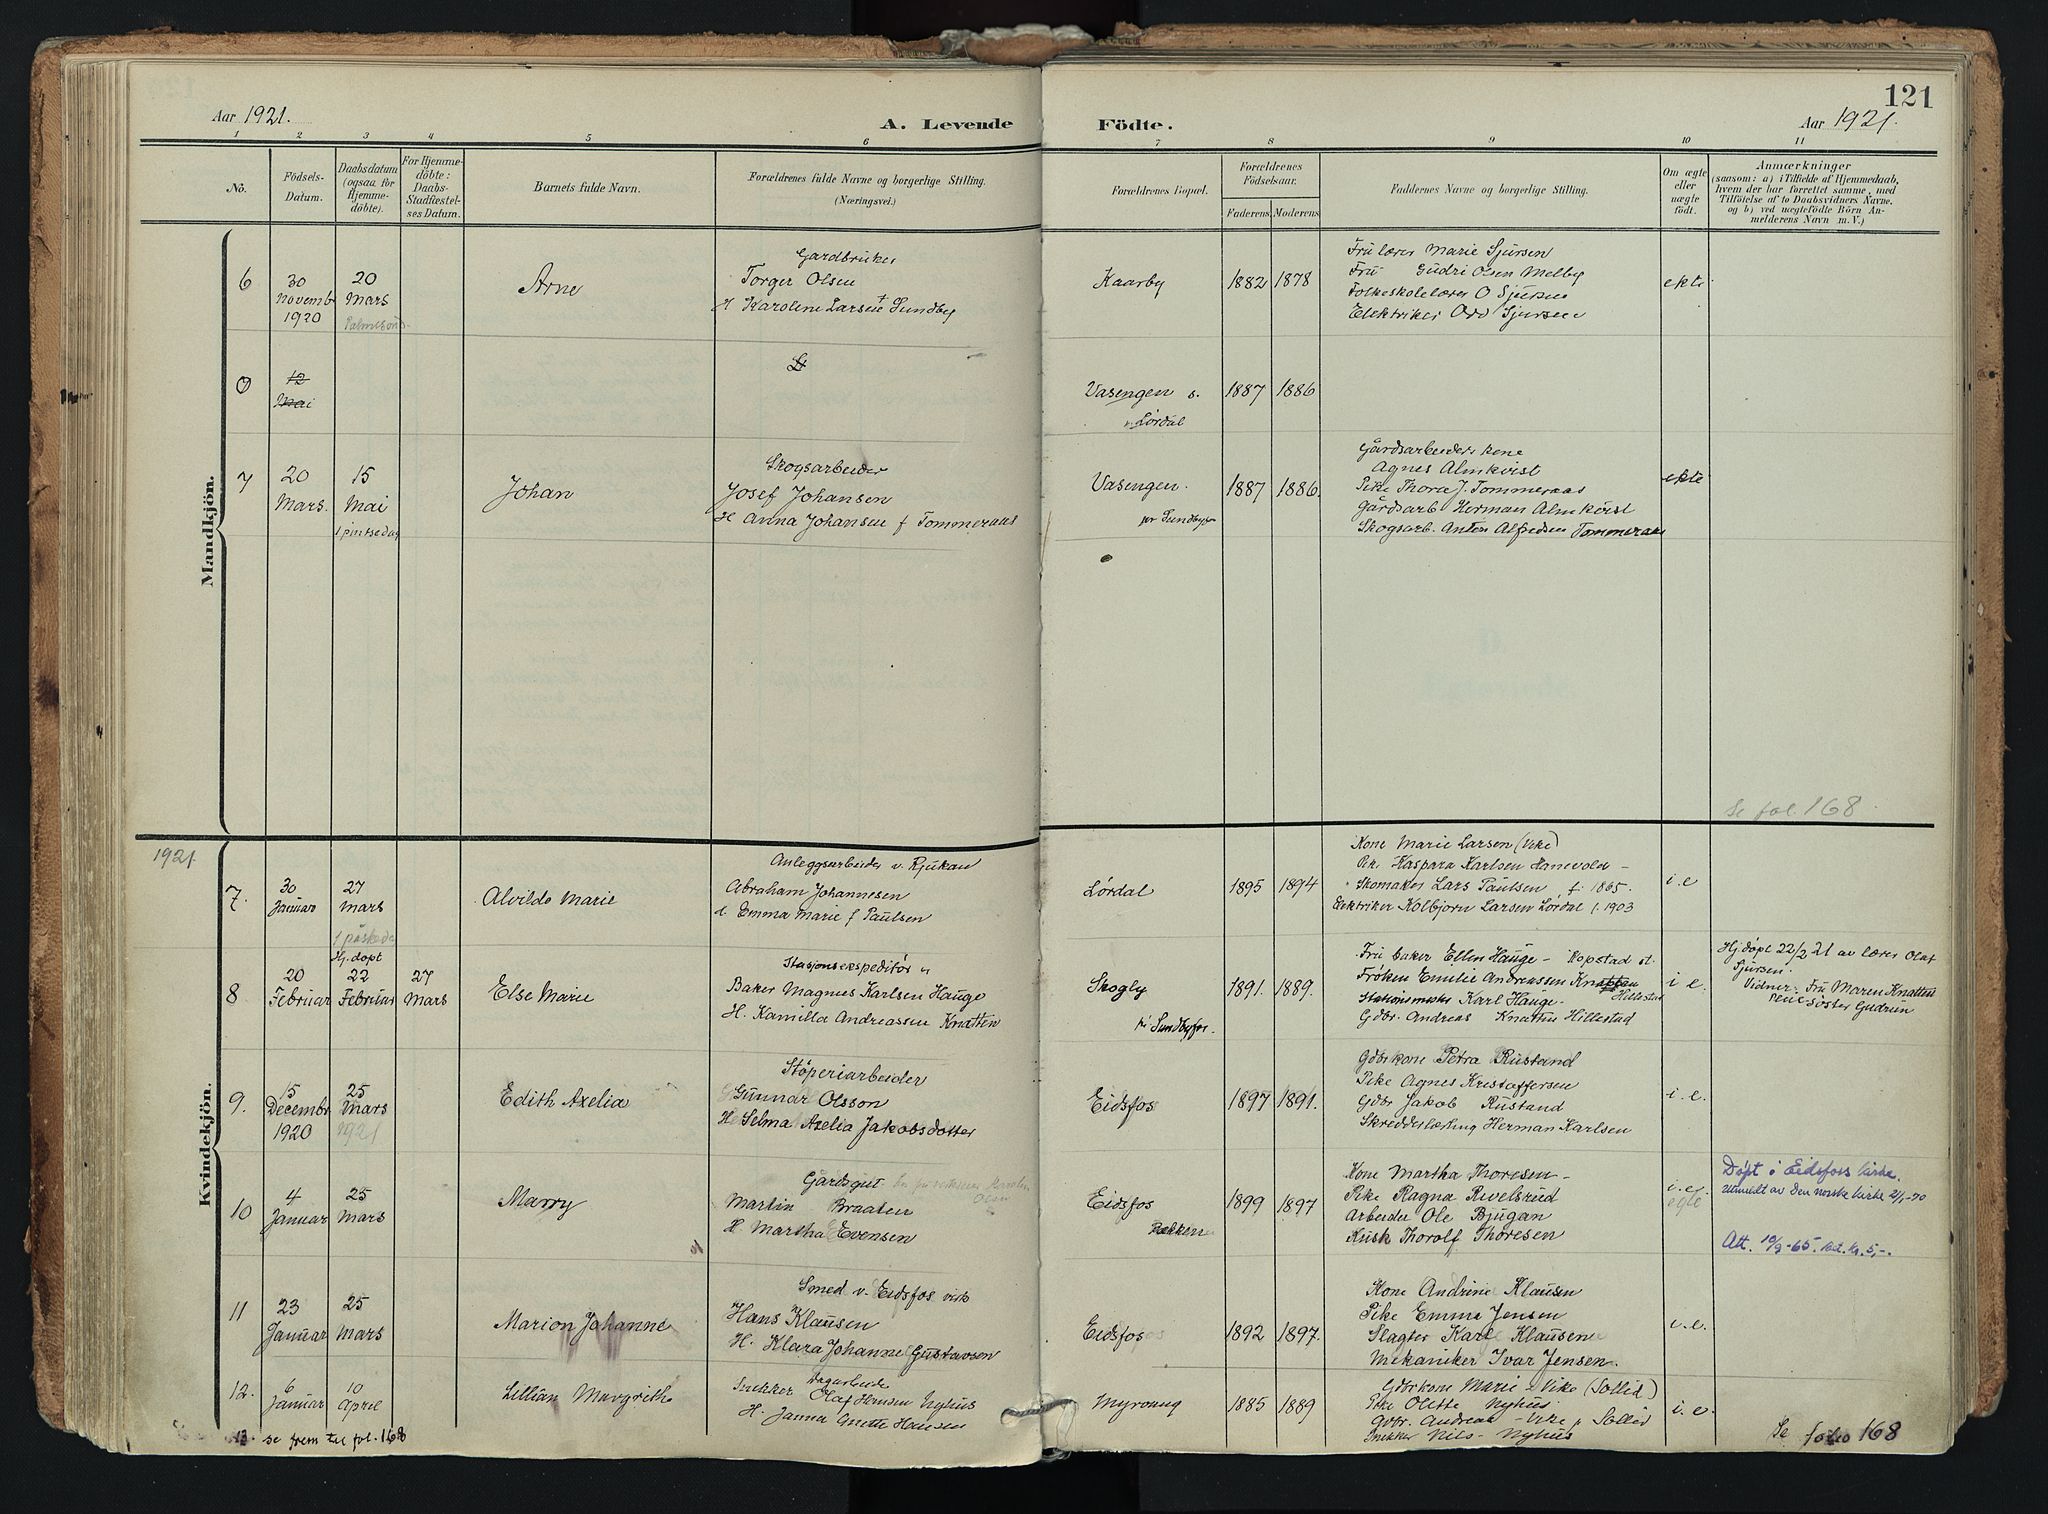 121
Aar 1921.
A. Levende Födte.
Aar 1921.
1 2 3 4 5 6 7 8 9 10 11
No.
Födsels-Datum.
Daabsdatum (ogsaa for Hjemme-döbte).
For Hjemme-döbte: Daabs-Stadfæstel-ses Datum.
Barnets fulde Navn.
Forældrenes fulde Navne og borgerlige Stilling.
(Næringsvei.)
Forældrenes Bopæl.
Forældrenes Födselsaar.
Faderens Moderens
Faddernes Navne og borgerlige Stilling.
Om ægte eller uægte født.
Anmærkninger
(saasom: a) i Tilfælde af Hjemmedaab,
hvem der har forrettet samme, med
Tilföielse af to Daabsvidners Navne,
og b) ved uægtefödte Börn An-
melderens Navn m. V.)
Mandkjön.
6
30 Novembr 1920
20 Mars
Arne
Gardbruker
Torger Olsen
H Karoline Larsen f Sundby
Kaarby
1882 1878
Fru lærer Marie Sjursen
Fru Gudri Olsen Melby
Folkeskolelærer O Sjursen
Elektriker Odd Sjursen
ekte
12
Mai
Vasengen s.
Lørdal
1887 1886
7
20 Mars.
15 Mai
1 pintsedag
Johan
Skogsarbeider
Josef Johansen
H Anna Johansen f Tommeraas
Vasengen.
pr Sundbyfos
1887 1886.
Gårdsarbeider kone
Agnes Almkvist
Pike Thora J. Tommeraas
Gårdsarb Herman Almkvist
Skogsarb. Anton Alfredsen Tommeraas
ekte
Se fol. 168
1921
Kvindekjön.
7.
30 Januar
27 Mars
1 påskedag
Alvilde Marie
Anleggsarbeider v. Rjukan
Abraham Johannesen
H. Emma Marie f Paulsen
Lórdal
1895 1894
Kone Marie Larsen (Vike)
Pk. Kaspara Karlsen Hanevold
Skomaker Lars Paulsen f. 1865.
Elektriker Kolbjorn Larsen Lørdal f. 1903
i. e
8
20 Februar
Hj. døpt
22 Februar
27 Mars
Else Marie
Stasjonsekspeditør
Baker Magnus Karlsen Hauge
H. Kamilla Andreassen Knatten
Skogly
pr Sundbyfos.
1891. 1889.
Fru baker Ellen Hauge - Kopstad st.
Frøken Emilie Andreassen Knatten
Hillestad
Stationsmester Karl Hauge
Gdbr. Andreas Knatten Hillestad
i e.
Hj. døpt 22/2 21 av lærer Olaf
Sjursen.
Vidner: Fru Maren Knatten
Pleiesøster Gudrun
9.
15 Decembr 1920
25 Mars 1921
Edith Axelia
Støperiarbeider
Gunnar Olsson
H Selma Axelia Jakobsdotter
Eidsfos
1897 1891.
Gdbr kone Petra Rustand
Pike Agnes Kristoffersen
Gdbr Jakob Rustand
Skredderlærling Herman Karlsen
i. e.
10
4 Januar
25 Mars
Marry
Gårdsgut
Martin Braaten
H Martha Evensen
Eidsfos
Bakken
1899 1897
Kone Martha Thoresen
Pike Ragna Rivelsrud
Arbeider Ole Bjugan
Kusk Thorolf Thoresen
i. e.
egte
Døpt i Eidsfoss kirke.
Utmeldt av den norske kirke 2/1-70
Att. 10/9-65. bet. kr. 5,-.
11
23 Januar
25 Mars
Marion Johanne
Smed v. Eidsfos verk
Hans Klausen
H. Klara Johanne Gustavsen
Eidsfos
1892 1897.
Kone Andrine Klausen
Pike Emma Jensen
Slagter Karl Klausen
Mekaniker Ivar Jensen.
i. e.
12.
6 Januar
10 April
Lillian Margrethe
Dagarbeide
Snekker Olaf Hansen Nyhus
H. Janna Anette Hansen
Myroang
1885 1889
Gdbrkone Marie Vike (Sollid)
Pike Olette Nyhus
Gdbr. Andreas Vike p Sollid
Snekker Nils Nyhus
i. e.
13 se frem til fol. 168
Se folio 168